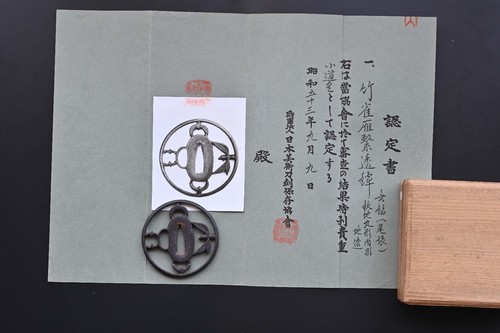 認定書
一、竹雀雁繋透鐔
無銘(尾張)
鉄地丸形肉彫
地透
右は當協會に於て審査の結果特別貴重
小道具として認定する
昭和五十三年九月九日
財團法人日本美術刀剣保存協會
殿